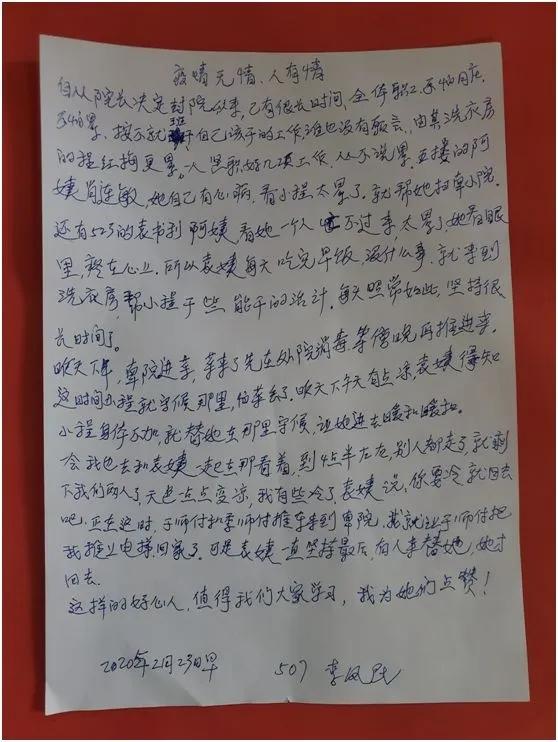 疫情无情、人有情
自从院长决定封院从事,已有很长时间,全体职工不怕困在
不怕累,按不就班干自己该干的工作,谁也没有怨言,由其洗衣房
的程红梅更累。一人兼职好几项工作,从不说累,五楼的阿
姨肖连敏,她自己有心病,看小程太累了,就帮她扫车小院
还有523的袁书利阿姨看她一个人忙不过来太累了,她看在眼
里,疼在心上,所以袁姨每天吃完早饭,没什么事,就来到
洗衣房,帮小程干些能干的活计,每天照常如此,坚持很
长时间了。
昨天下午,車院进車,車来了先在外院消毒等傍晚再推进来,
这时间小程就守候那里,怕车丢了。昨天下午天有点凉袁姨得知
小程身体不加,就替她在那里守候,让她进去暖和暖和。
会我也去和袁姨一起在那看着,到4点半左右,别人都走了,就剩
下我们两人了,天色有点变凉,我有些冷了袁姨说,你要冷就回去
吧,正在这时,于师付和李师付推车来到車院,我就让于师付把
我推上电梯,回家了,可是袁姨一直坚持最后,有人来替她,她才
回去.
这样的好心人,值得我们大家学习,我为她们点赞!
2020年2月23日早 507 李凤民